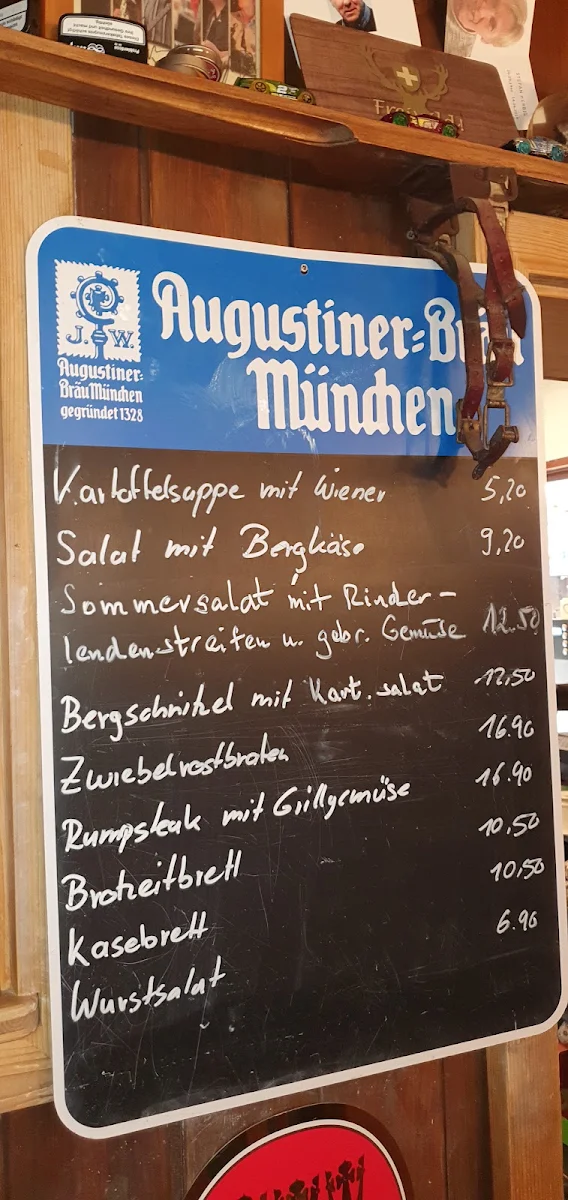 J. W.
Augustiner=
Bräu München
gegründet 1328
Augustiner=Bräu
München
Kartoffelsuppe mit Wiener 5,20
Salat mit Bergkäse 9,20
Sommersalat mit Rinder-
lendenstreifen u. gebr. Gemüse 12.50
Bergschnitzel mit Kart.salat 12,50
Zwiebelrostbraten 16.90
Rumpsteak mit Grillgemüse 16.90
Brotzeitbrettl 10,50
Kasebrett 10,50
Wurstsalat 6.90